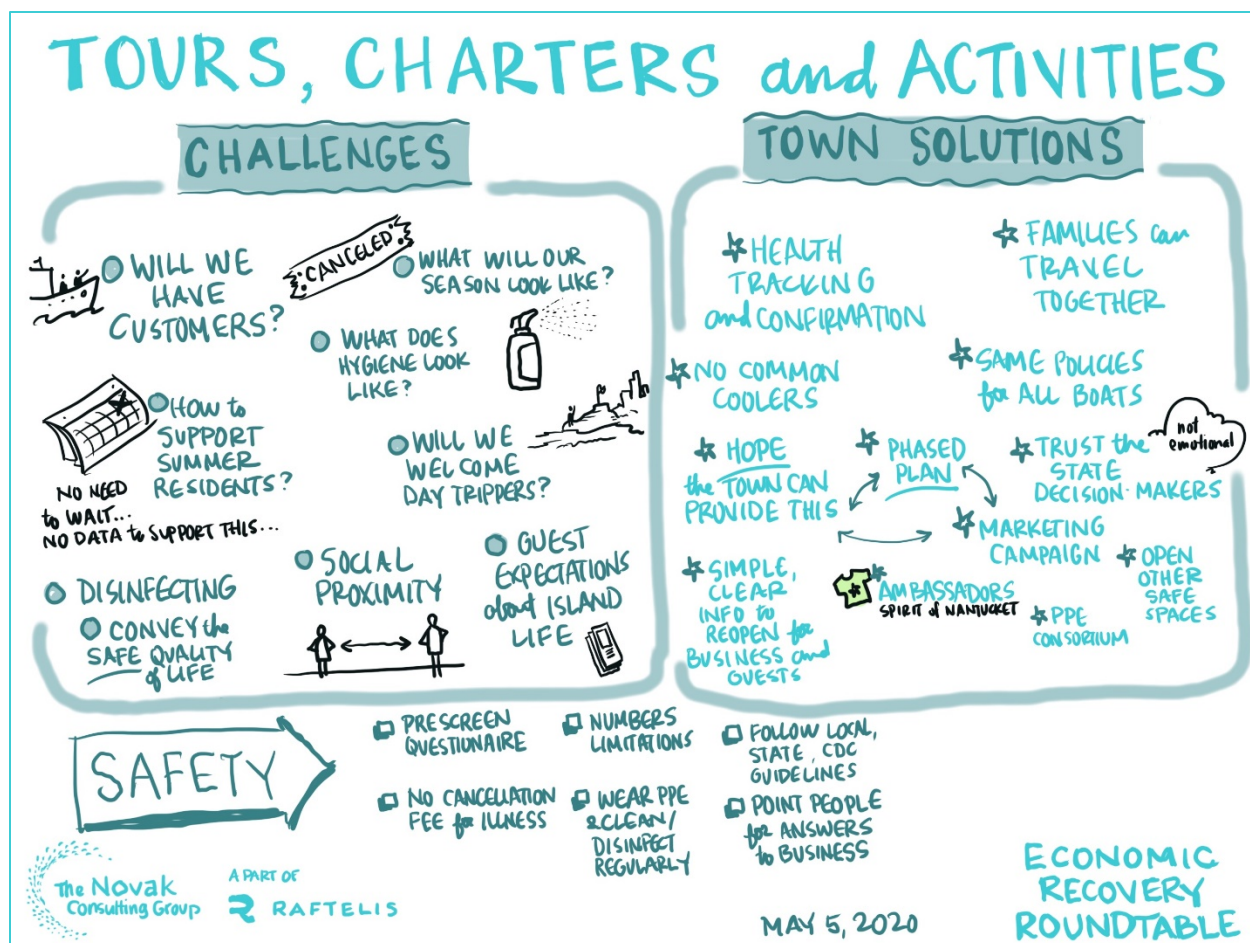 TOURS, CHARTERS and ACTIVITIES
CHALLENGES
WILL WE
HAVE
CUSTOMERS?
CANCELED
WHAT WILL OUR
SEASON LOOK LIKE?
WHAT DOES
HYGIENE LOOK
LIKE?
HOW to
SUPPORT
SUMMER
RESIDENTS?
NO NEED
to WAIT...
NO DATA to SUPPORT THIS...
WILL WE
WELCOME
DAY TRIPPERS?
DISINFECTING
CONVEY the
SAFE QUALITY
of LIFE
SOCIAL
PROXIMITY
GUEST
EXPECTATIONS
about ISLAND
LIFE
TOWN SOLUTIONS
HEALTH
TRACKING
and CONFIRMATION
FAMILIES can
TRAVEL
TOGETHER
NO COMMON
COOLERS
SAME POLICIES
for ALL BOATS
HOPE
the TOWN CAN
PROVIDE THIS
PHASED
PLAN
TRUST the
STATE
DECISION-MAKERS
not
emotional
MARKETING
CAMPAIGN
SIMPLE,
CLEAR
INFO to
REOPEN for
BUSINESS and
GUESTS
AMBASSADORS
SPIRIT of NANTUCKET
PPE
CONSORTIUM
OPEN
OTHER
SAFE
SPACES
SAFETY
PRESCREEN
QUESTIONAIRE
NUMBERS
LIMITATIONS
FOLLOW LOCAL,
STATE, CDC
GUIDELINES
NO CANCELLATION
FEE for ILLNESS
WEAR PPE
& CLEAN/
DISINFECT
REGULARLY
POINT PEOPLE
for ANSWERS
to BUSINESS
The Novak
Consulting Group
A PART OF
RAFTELIS
MAY 5, 2020
ECONOMIC
RECOVERY
ROUNDTABLE